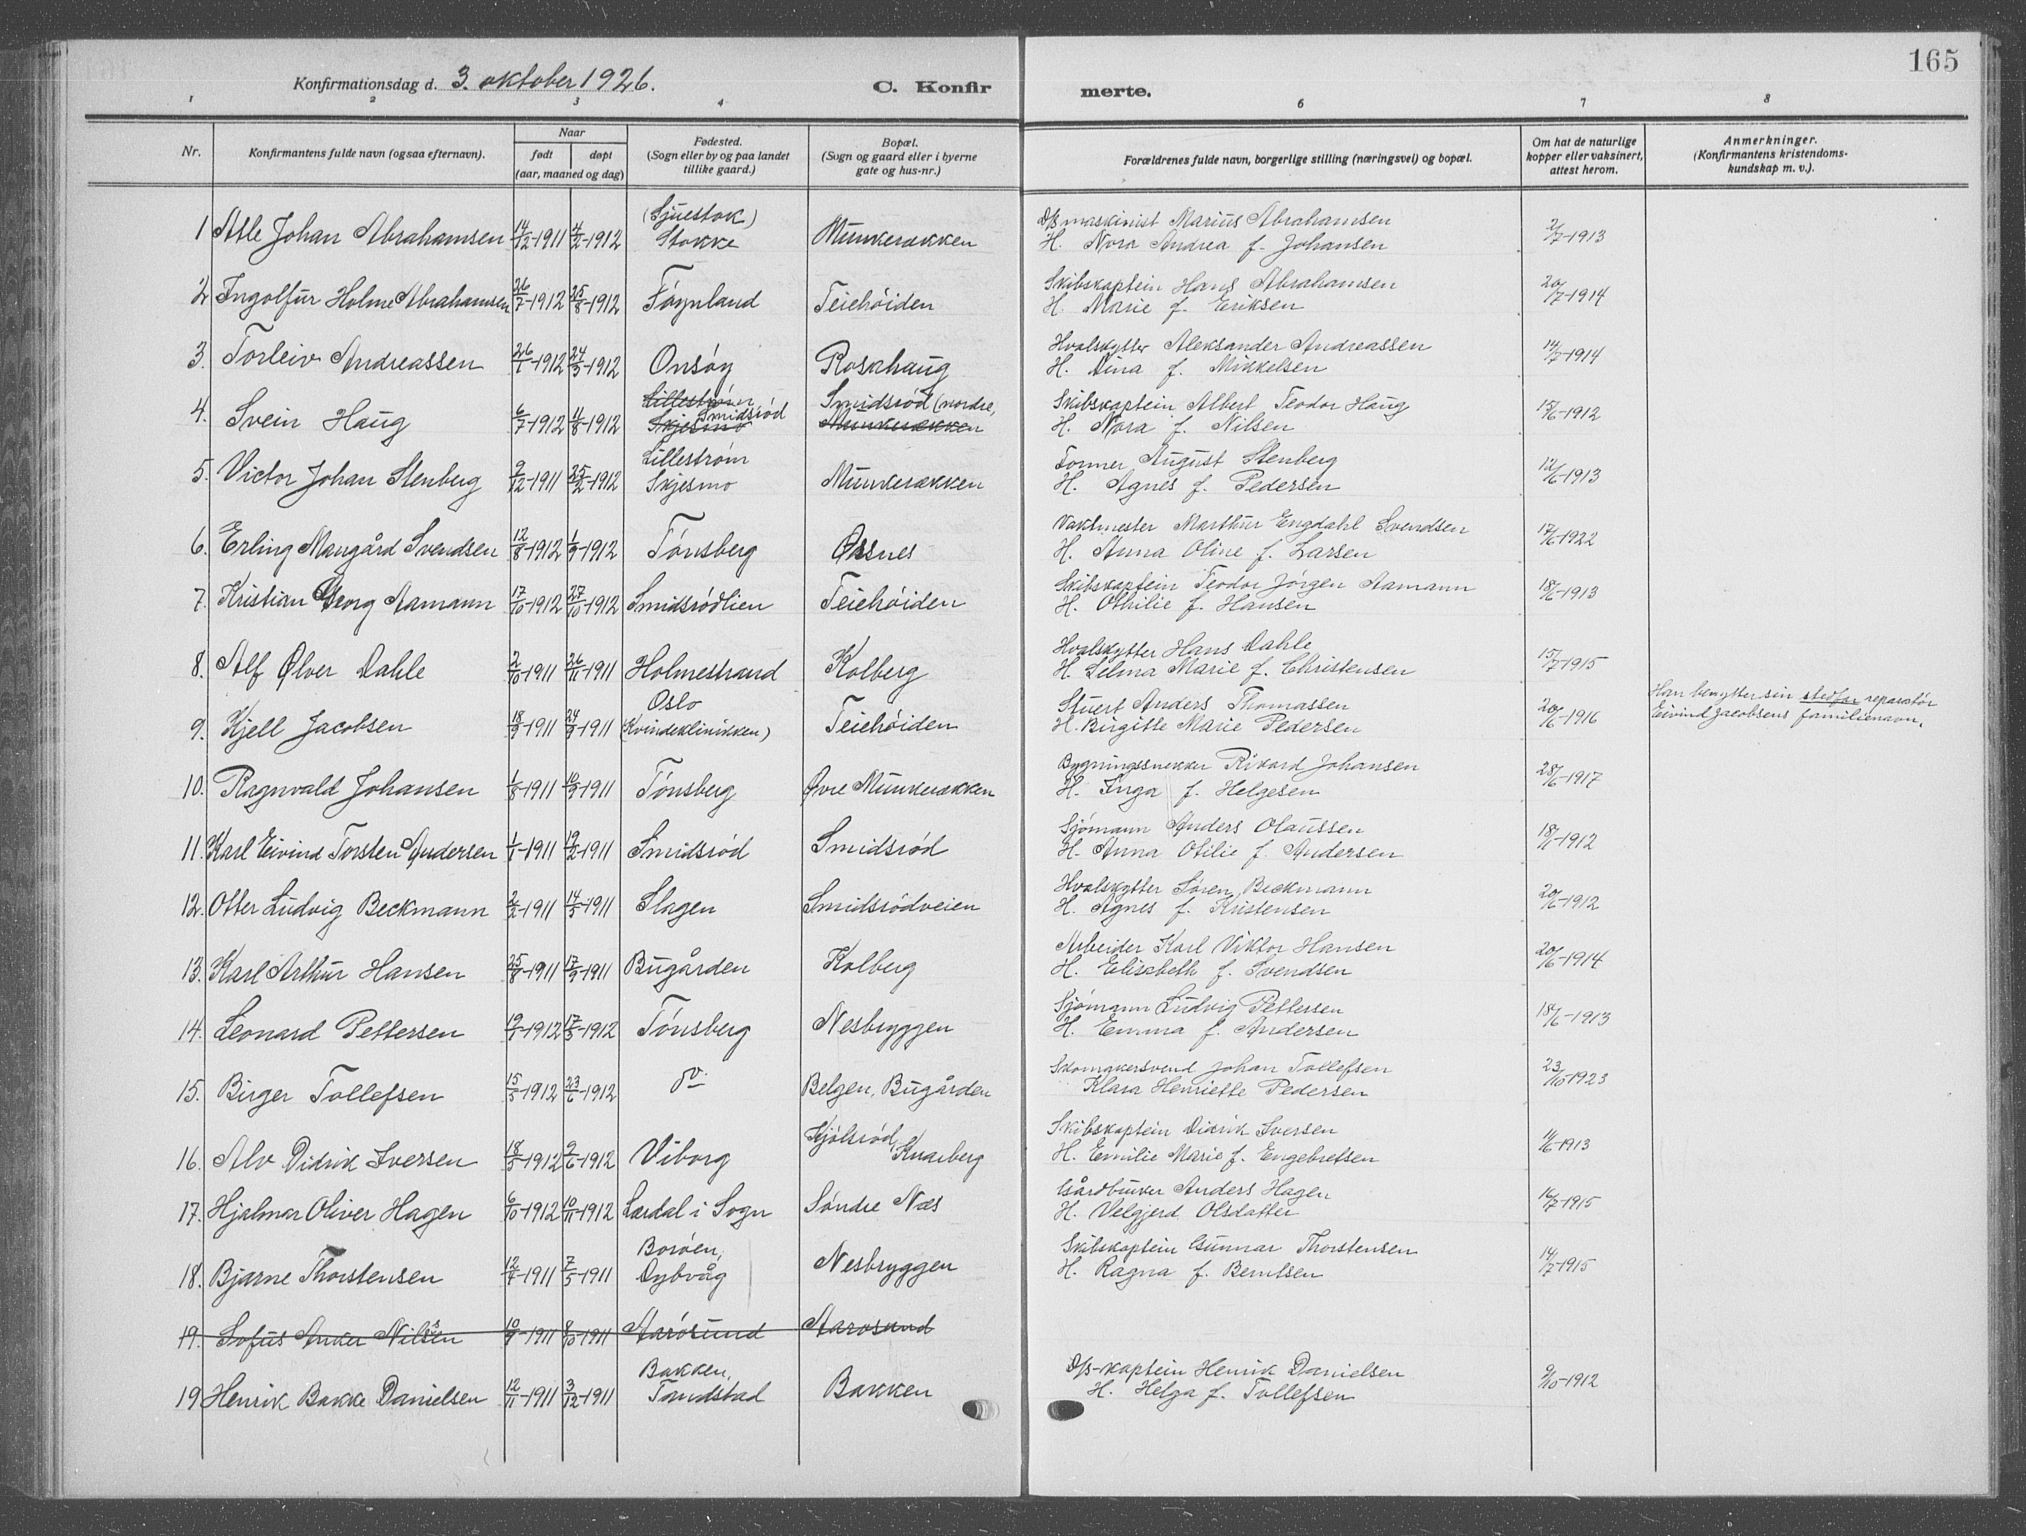 165
Konfirmationsdag d. 3. oktober 1926.
C. Konfir
merte.
1 2 3 4 6 7 8
Nr.
Konfirmantens fulde navn (ogsaa efternavn).
Naar
født døpt
(aar, maaned og dag)
Fødested.
(Sogn eller by og paa landet
tillike gaard.)
Bopæl.
(Sogn og gaard eller i byerne
gate og hus-nr.)
Forældrenes fulde navn, borgerlige stilling (næringsvei) og bopæl.
Om hat de naturlige
kopper eller vaksinert,
attest herom.
Anmerkninger.
(Konfirmantens kristendoms-
kundskap m. v.).
1 Atle Johan Abrahamsen 14/12-1911 4/2-1912 (Sjuestok) Stokke Munkerækken
D/S maskinist Marius Abrahamsen
H. Nora Andrea f. Johansen 2/7-1913
2 Ingolfur Holme Abrahamsen 26/7-1912 25/8-1912 Føynland Teiehøiden
Skibskaptein Hans Abrahamsen
H. Marie f. Eriksen 20/7-1914
3. Torleiv Andreassen 26/1-1912 24/3-1912 Onsøy Rosahaug
Hvalskytter Aleksander Andreassen
H. Dina f. Mikkelsen 14/7-1914
4. Svein Haug 6/7-1912 4/8-1912 Lillestrøm Skjesmo Smidsrød Smidsrød (nordre, Munkerækken
Skibskaptein Albert Teodor Haug
H. Nora f. Nilsen 15/6-1912
5. Victor Johan Stenberg 9/12-1911 25/2-1912 Lillestrøm Skjesmo Munkerækken
Former August Stenberg
H. Agnes f. Pedersen 12/6-1913
6. Erling Mangård Svendsen 12/8-1912 1/9-1912 Tønsberg Ørsnes
Vaktmester Marthur Engdahl Svendsen
H. Anna Oline f. Larsen 17/6-1922
7. Kristian Georg Aamann 17/10-1912 27/10-1912 Smidsrødlien Teiehøiden
Skibskaptein Teodor Jørgen Aamann
H. Othilie f. Hansen 18/6-1913
8. Alf Ølver Dahle 2/10-1911 26/11-1911 Holmestrand Kolberg
Hvalskytter Hans Dahle
H. Selma Marie f. Christensen 15/7-1915
9. Kjell Jacobsen 18/9-1911 24/9-1911 Oslo (Kvindeklinikken) Teiehøiden
Stuert Anders Thomassen
H. Birgitte Marie Pedersen 20/6-1916
Han benytter sin stedfar reparatør
Eivind Jacobsens familienavn.
10. Ragnvald Johansen 1/8-1911 10/9-1911 Tønsberg Øvre Munkerækken
Bygningssnekker Rikard Johansen
H. Inga f. Helgesen 28/6-1917
11. Karl Eivind Torsten Andersen 1/1-1911 19/2-1911 Smidsrød Smidsrød
Sjømann Anders Olaussen
H. Anna Otilie f. Andersen 18/11-1912
12. Otter Ludvig Beckmann 2/2-1911 14/5-1911 Slagen Smidsrødveien
Hvalskytter Søren Beckmann
H. Agnes f. Kristensen 20/6-1912
13. Karl Arthur Hansen 25/8-1911 17/9-1911 Bugården Kolberg
Arbeider Karl Viktor Hansen
H. Elisabeth f. Svendsen 20/6-1914
14. Leonard Pettersen 19/1-1912 17/3-1912 Tønsberg Nesbryggen
Sjømann Ludvig Pettersen
H. Emma f. Andersen 18/6-1913
15. Birger Tollefsen 15/5-1912 23/6-1912 do. Belgen, Bugården
Skomakersvend Johan Tollefsen
Klara Henriette Pedersen 23/10-1923
16. Alv Didrik Iversen 18/5-1912 9/6-1912 Viborg Kjølsrød, Knarberg
Skibskaptein Didrik Iversen
H. Emilie Marie f. Engebretsen 11/6-1913
17. Hjalmar Oliver Hagen 6/10-1912 10/11-1912 Lærdal i Sogn Søndre Næs
Gårdbruker Anders Hagen
H. Velgjerd Olsdatter 16/7-1915
18. Bjarne Thorstensen 12/4-1911 7/5-1911 Borøen, Dybvåg Nesbryggen
Skibskaptein Gunnar Thorstensen
H. Ragna f. Berntsen 14/7-1915
19. Sofus Anker Nilssen 10/9-1911 8/10-1911 Aarøsund Aarosund
19 Henrik Bakke Danielsen 12/11-1911 3/12-1911 Bakken, Tandstad Bakken
D/S-kaptein Henrik Danielsen
H. Helga f. Tollefsen 9/10-1912